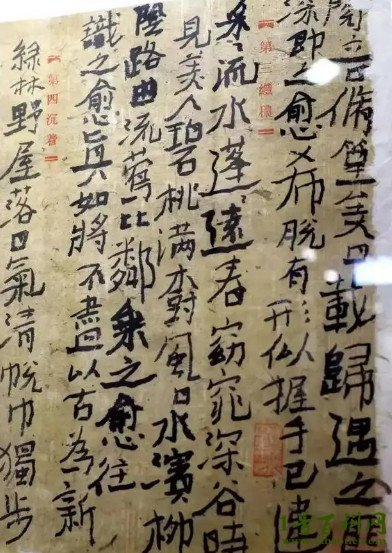 閱音脩篁美曰載歸遇之
深即之愈希脱有形似握手已違
第三纖穠
采々流水蓬々遠春窈窕深谷時
見美人碧桃滿樹風日水濱柳
陰路曲流鶯比鄰乘之愈往
識之愈真如將不盡以古為新
第四沉著
綠林野屋落日氣清脱巾獨步